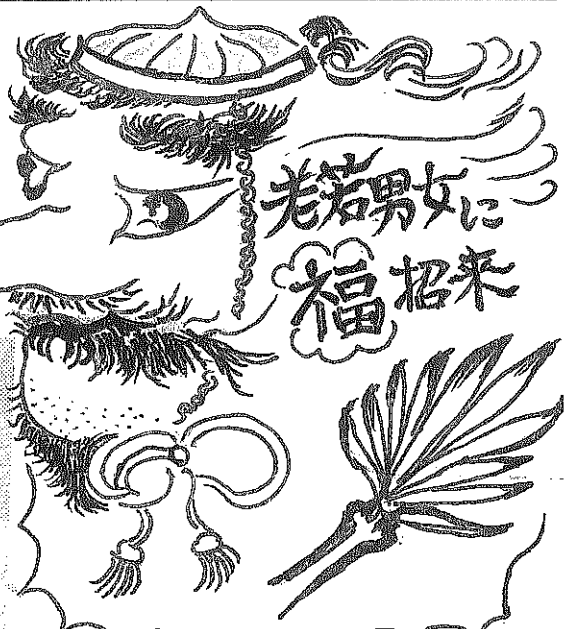 老若男女に
福招来